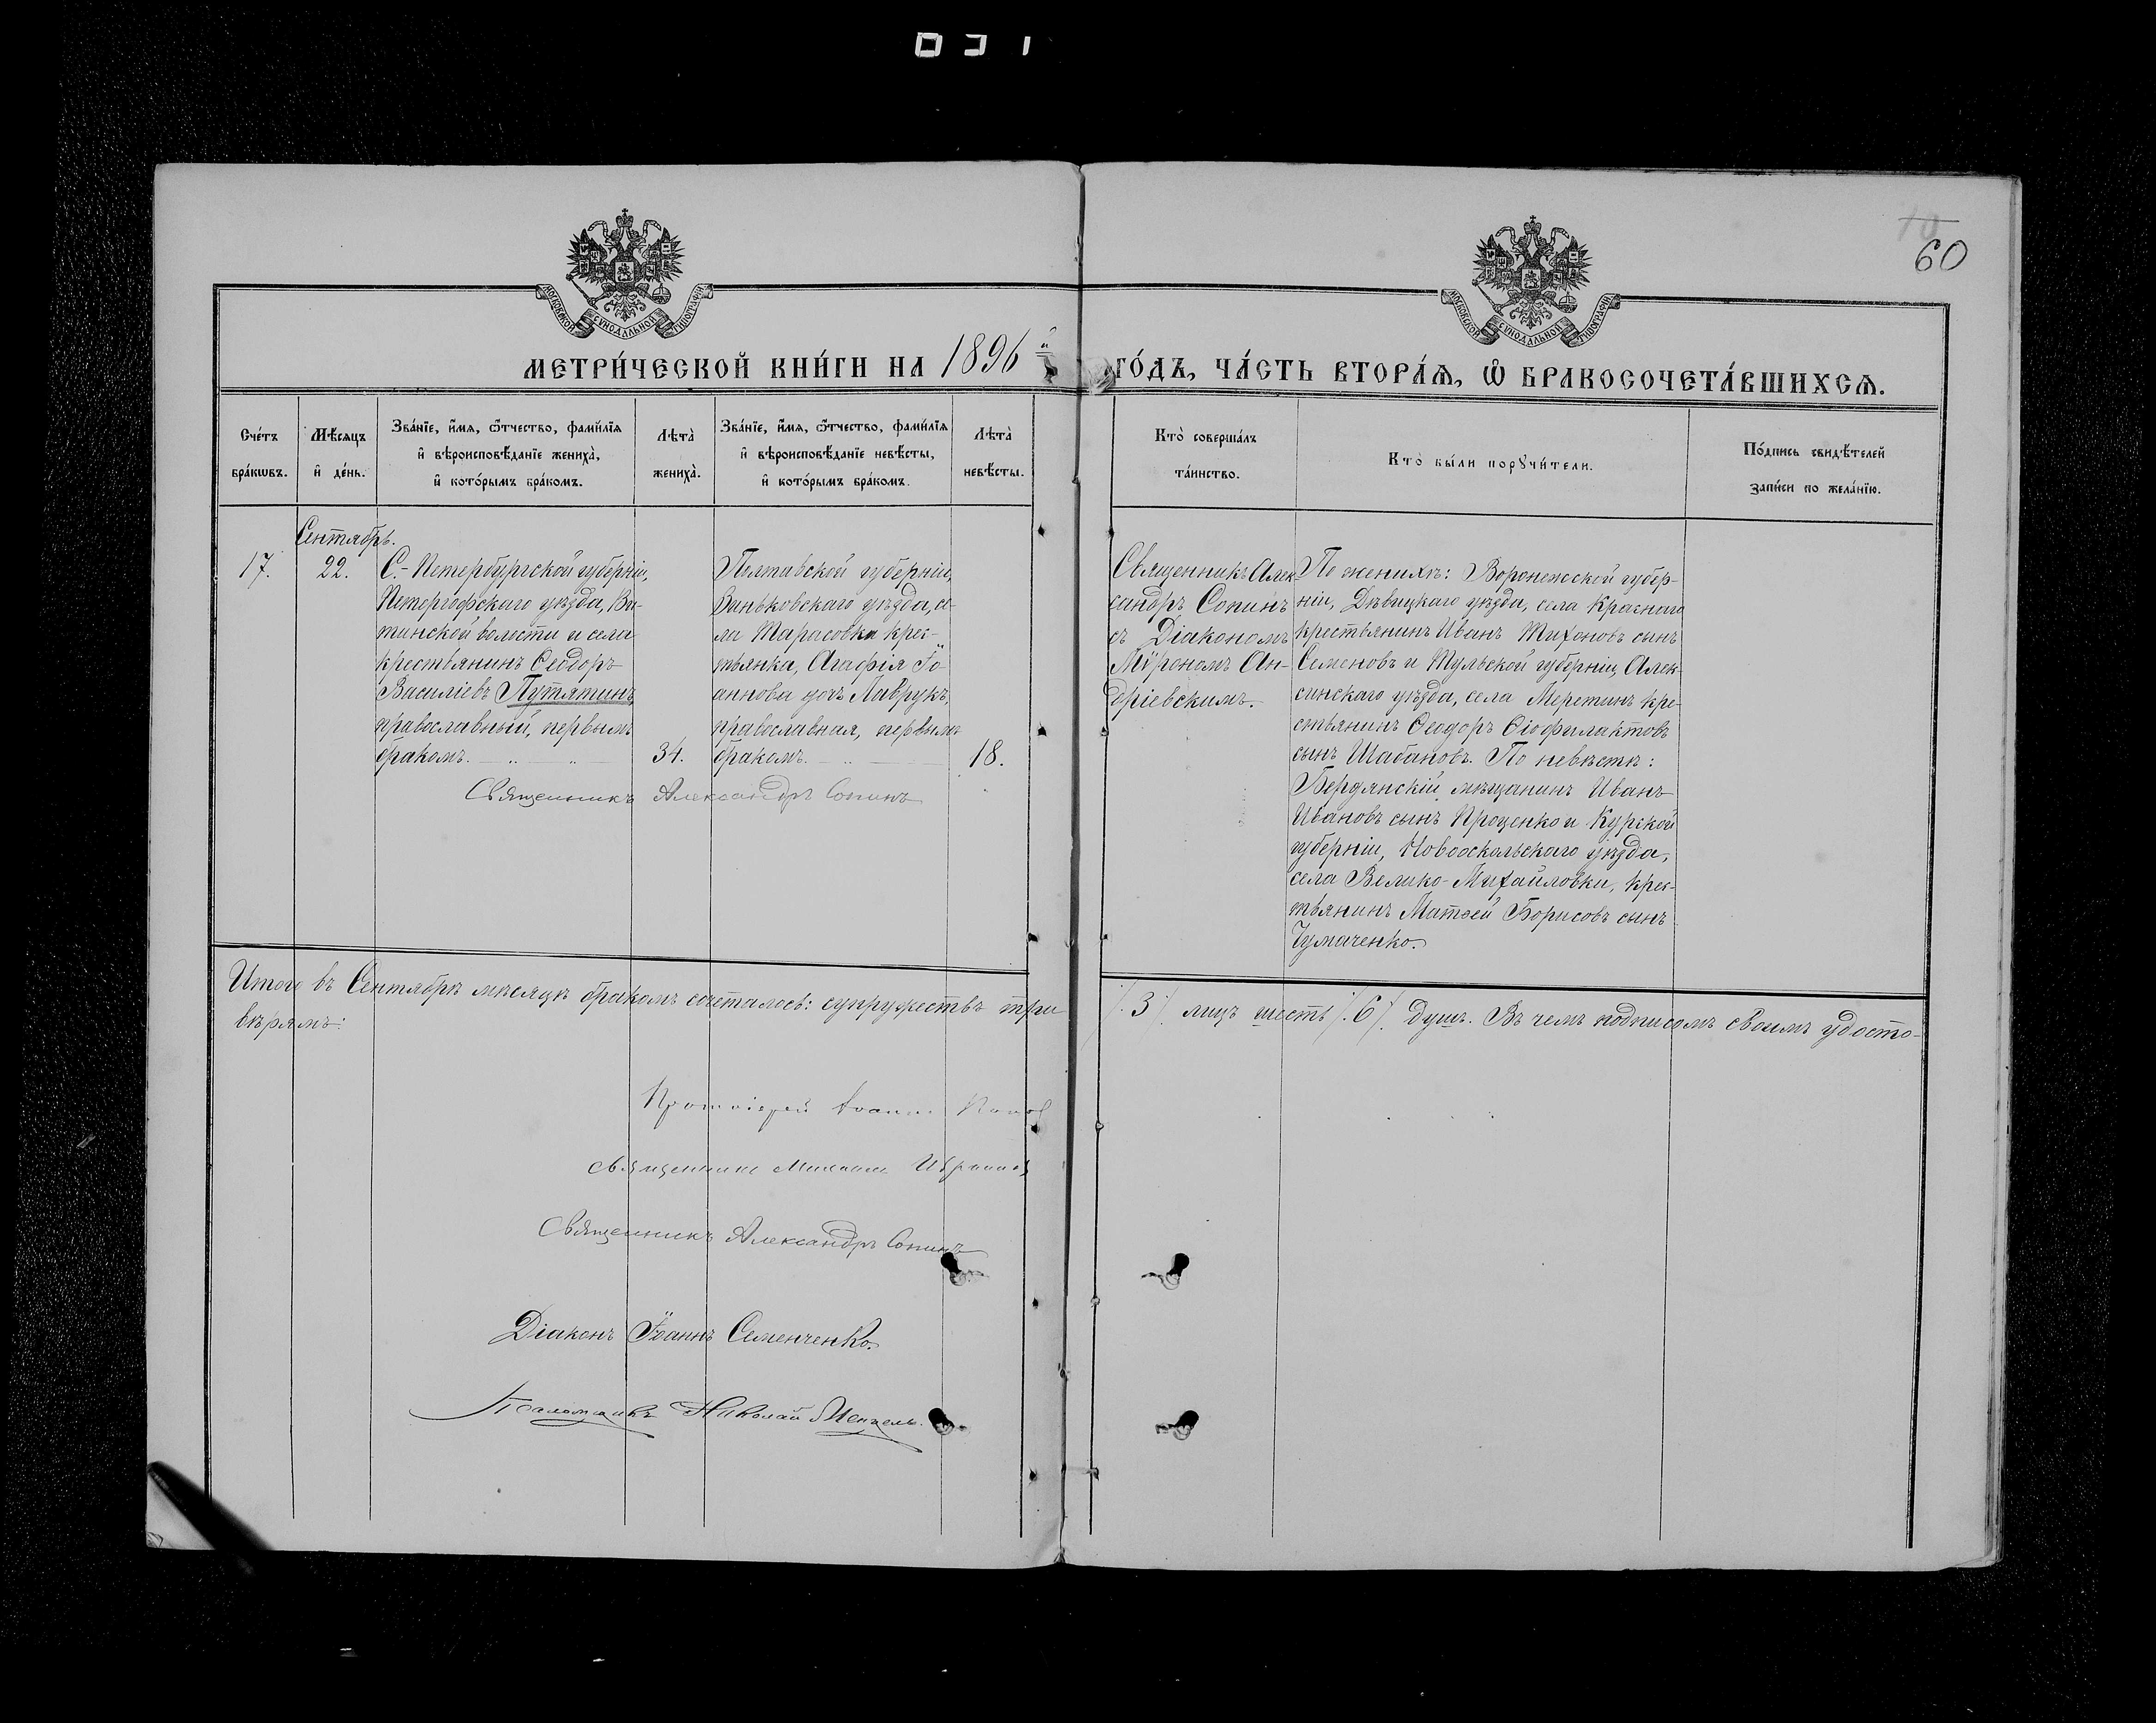 60
МЕТРИ́ЧЕСКОЙ КНИ́ГИ НА 1896й ГО́ДЪ, ЧА́СТЬ ВТОРА́Ѧ, Ѡ БРАКОСОЧЕТА́ВШИХСѦ.
МОСКОВСКОЙ СѴНОДАЛЬНОЙ ТИПОГРАФІИ
МОСКОВСКОЙ СѴНОДАЛЬНОЙ ТИПОГРАФІИ
Сче́тъ
бра́кѡвъ.
Мѣ́сяцъ
и҆ де́нь.
Зва́нїе, и҆́мя, ѻ҆́тчество, фами́лїя
и҆ вѣроисповѣ́данїе жениха̀,
и҆ кото́рымъ бра́комъ.
Лѣ́та̀
жениха̀.
Зва́нїе, и҆́мя, ѻ҆́тчество, фами́лїя
и҆ вѣроисповѣ́данїе невѣ́сты,
и҆ кото́рымъ бра́комъ.
Лѣ́та̀
невѣ́сты.
Кто̀ соверша́лъ
та́инство.
Кто̀ бы́ли порꙋчи́тели.
По́дпись свидѣ́телей
за́писи по жела́нїю.
Сентябрь.
17.
22.
С.-Петербургской губерніи,
Петергофскаго уѣзда, Ва-
тинской волости и села
крестьянинъ Ѳеодоръ
Василіевъ Путятинъ,
православный, первымъ
бракомъ.
34.
Полтавской губерніи,
Зиньковскаго уѣзда, се-
ла Тарасовки крес-
тьянка, Агафія Іо-
аннова дочь Лаврукъ,
православная, первымъ
бракомъ.
18.
Священникъ Александръ Сопинъ
Священникъ Алек-
сандръ Сопинъ
съ Діакономъ
Мѵрономъ Ан-
дріевскимъ.
По женихѣ: Воронежской губер-
ніи, Дѣвицкаго уѣзда, села Краснаго
крестьянинъ Иванъ Тихоновъ сынъ
Семеновъ и Тульской губерніи, Алек-
синскаго уѣзда, села Меретинъ кре-
стьянинъ Ѳеодоръ Ѳіофилактовъ
сынъ Шабановъ. По невѣстѣ:
Бердянскій мѣщанинъ Иванъ
Ивановъ сынъ Проценко и Курской
губерніи, Новооскольскаго уѣзда,
села Велико-Михайловки, крес-
тьянинъ Матѳей Борисовъ сынъ
Чумаченко.
Итого въ Сентябрѣ мѣсяцѣ бракомъ сочеталось: супружествъ три /.3./ лицъ шесть /.6./ душъ. Въ чемъ подписомъ своимъ удосто-
вѣряемъ:
Протоіерей Іоаннъ Попов
Священникъ Михаилъ
Священникъ Александръ Сопинъ
Діаконъ Іоаннъ Семенченко.
Псаломщикъ Николай Менцель.